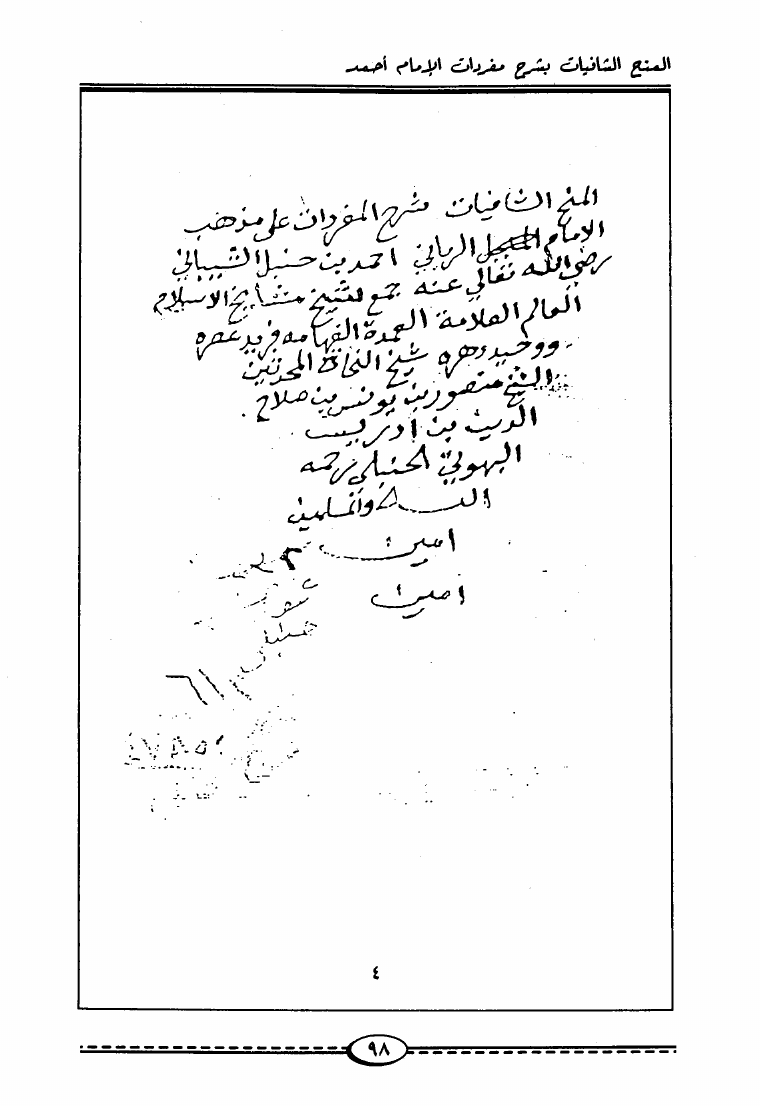 المنح الشافيات بشرح مفردات الإمام أحمد
المنح الشافيات بشرح المفردات على مذهب
الامام المبجل الرباني احمد بن حنبل الشيباني
رضي الله تعالى عنه جمع لشيخ مشايخ الاسلام
العالم العلامة العمدة الفهامه فريد عصره
ووحيد دهره شيخ النحاة المحدثين
الشيخ منصور بن يونس بن صلاح
الدين بن ادريس
البهوتي الحنبلي رحمه
الله والمسلمين
امين
امين
حنابل
٤
٩٨